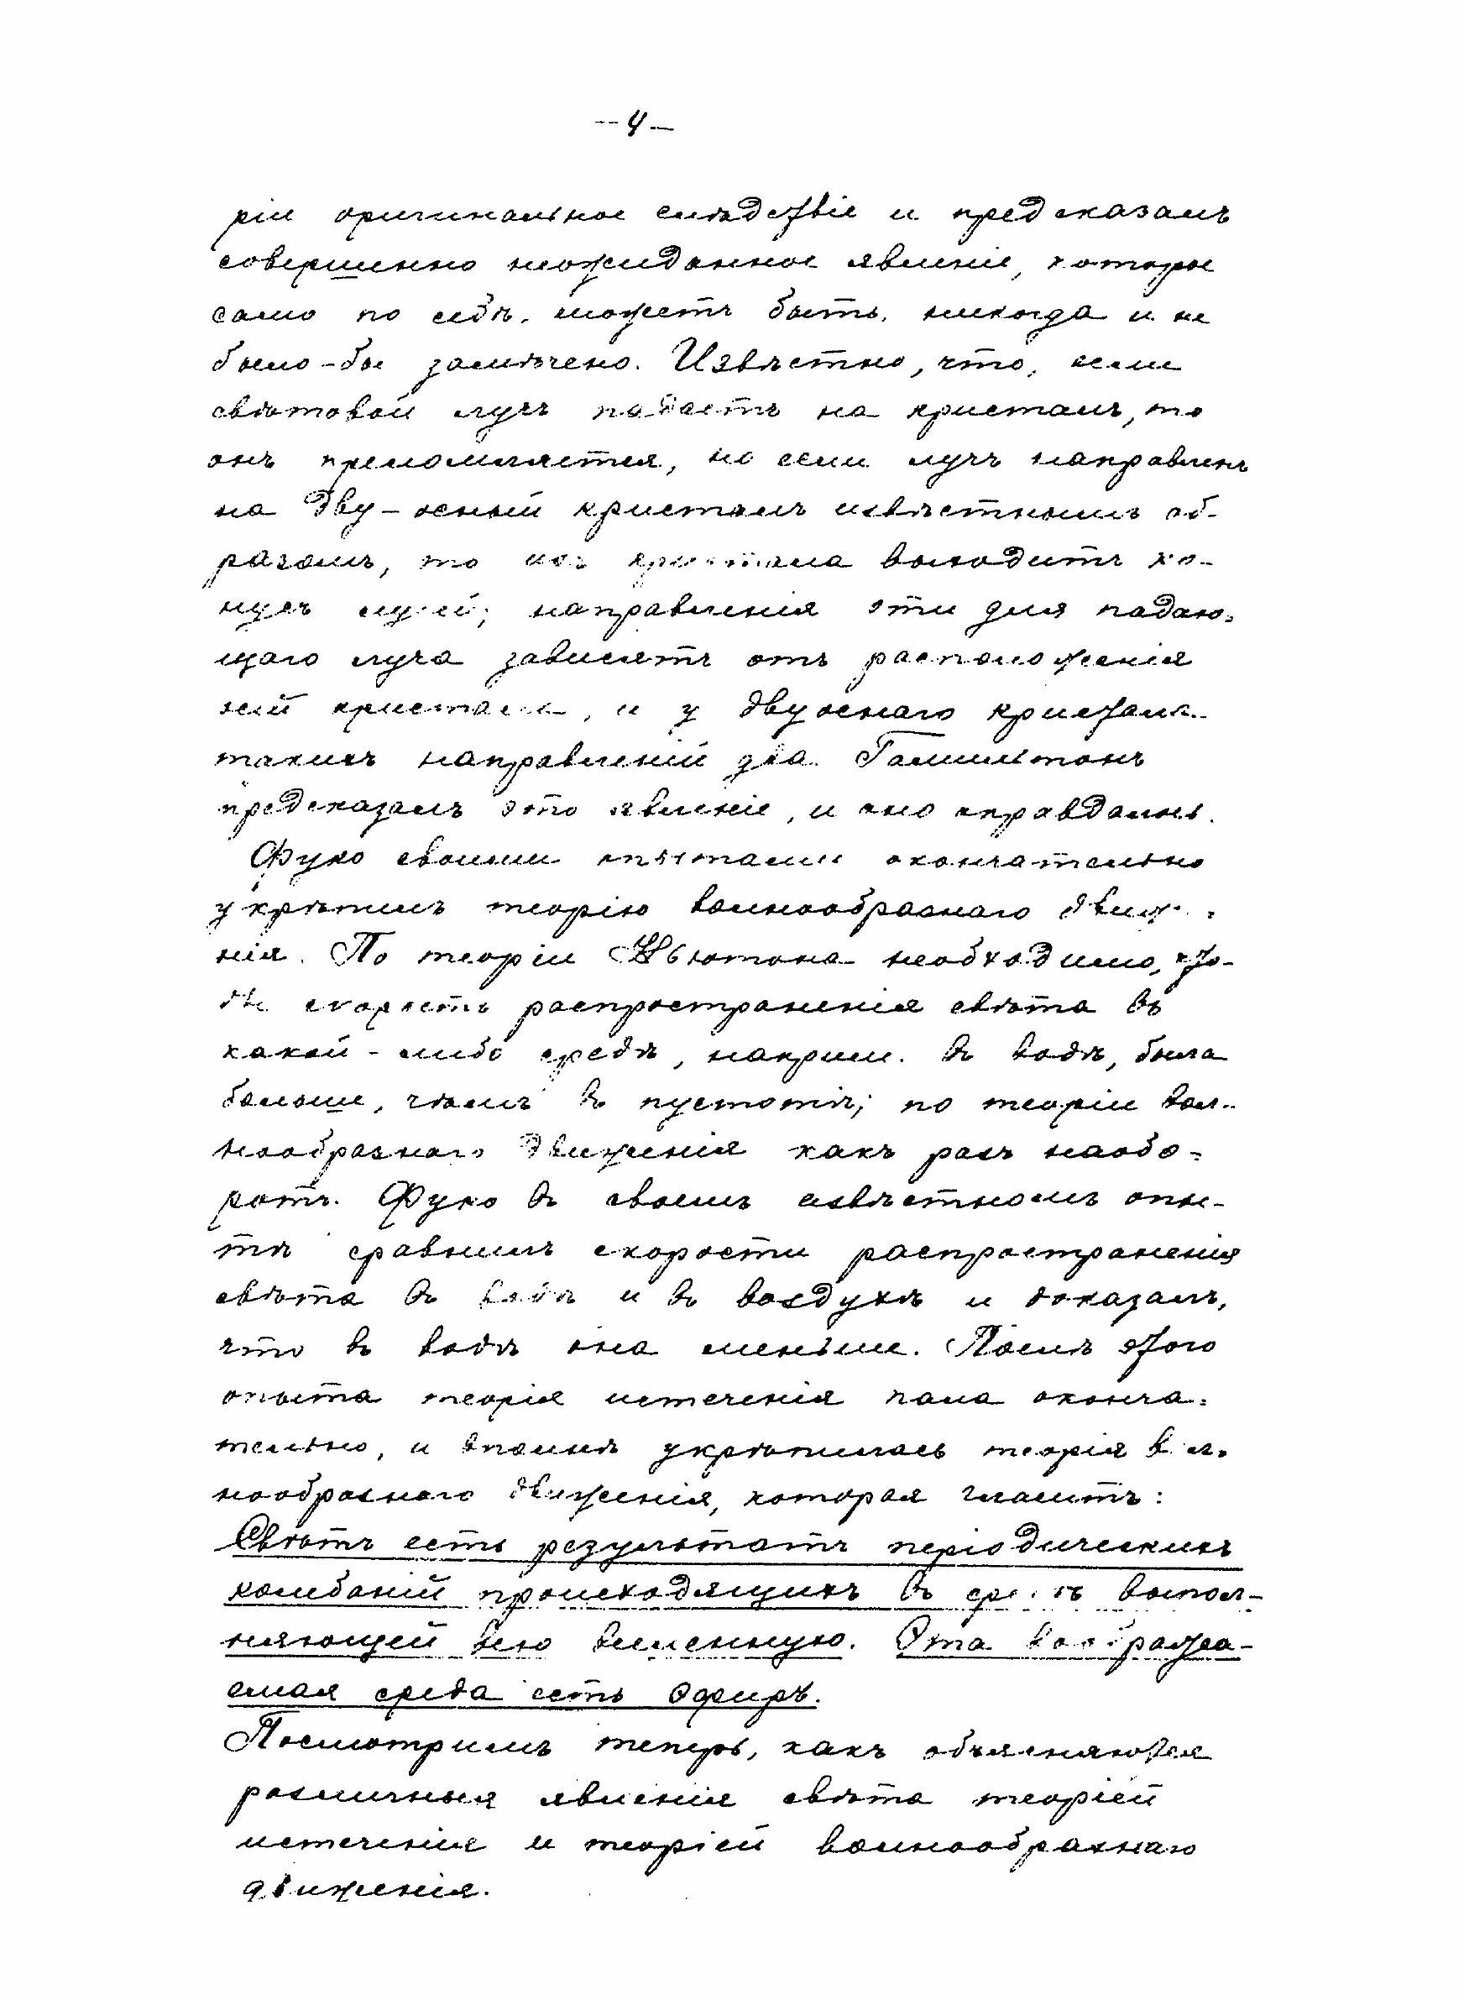 -- 4 --
ріи оригинальное слѣдствіе и предсказалъ
совершенно неожиданное явленіе, которое
само по себѣ, можетъ быть, никогда и не
было-бы замѣчено. Извѣстно, что, если
свѣтовой лучъ падаетъ на кристалъ, то
онъ преломляется, но если лучъ направленъ
на дву-осный кристалъ извѣстнымъ об-
разомъ, то изъ кристала выходитъ ко-
нусъ лучей; направленія эти для падаю-
щаго луча зависятъ отъ расположенія
осей кристала, и у двуоснаго кристала
такихъ направленій два. Гамильтонъ
предсказалъ это явленіе, и оно оправдалось.
Фуко своими опытами окончательно
укрѣпилъ теорію волнообразнаго движе-
нія. По теоріи Ньютона необходимо, что-
бы скорость распространенія свѣта въ
какой-либо средѣ, наприм. въ водѣ, была
больше, чѣмъ въ пустотѣ; по теоріи вол-
нообразнаго движенія какъ разъ наобо-
ротъ. Фуко въ своемъ извѣстномъ опы-
тѣ сравнилъ скорости распространенія
свѣта въ водѣ и въ воздухѣ и доказалъ,
что въ водѣ она меньше. Послѣ этого
опыта теорія истеченія пала оконча-
тельно, и вполнѣ укрѣпилась теорія вол-
нообразнаго движенія, которая гласитъ:
Свѣтъ есть результатъ періодическихъ
колебаній происходящихъ въ средѣ выпол-
няющей всю вселенную. Эта воображա-
емая среда есть эфиръ.
Посмотримъ теперь, какъ объясняются
различныя явленія свѣта теоріей
истеченія и теоріей волнообразнаго
движенія.